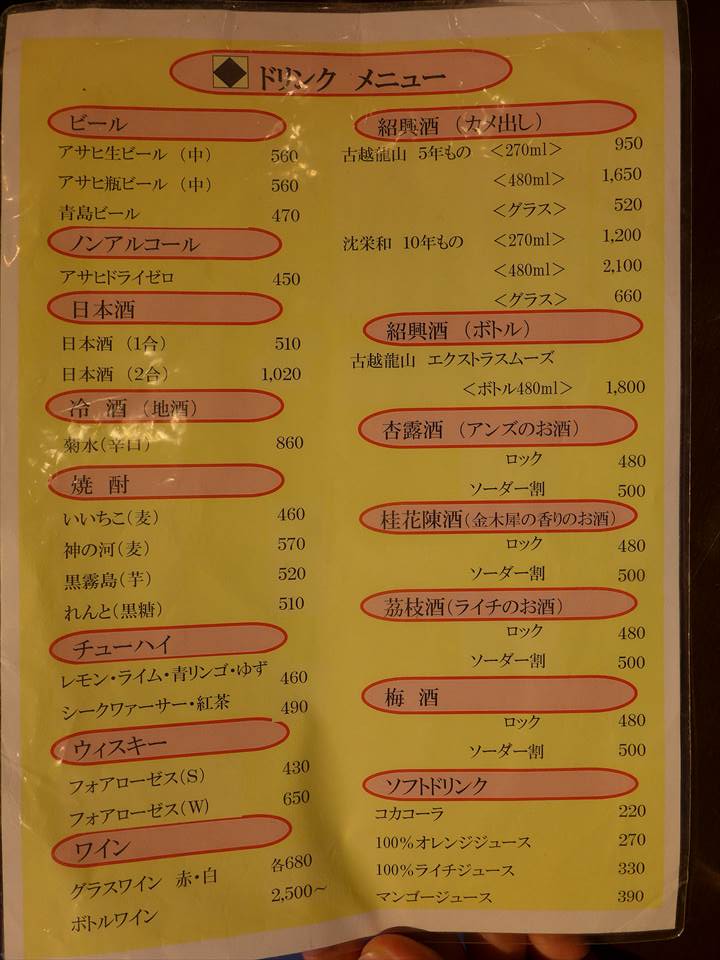 ドリンク メニュー
ビール
アサヒ生ビール (中) 560
アサヒ瓶ビール (中) 560
青島ビール 470
ノンアルコール
アサヒドライゼロ 450
日本酒
日本酒 (1合) 510
日本酒 (2合) 1,020
冷 酒 (地酒)
菊水(辛口) 860
焼 酎
いいちこ(麦) 460
神の河(麦) 570
黒霧島(芋) 520
れんと(黒糖) 510
チューハイ
レモン・ライム・青リンゴ・ゆず 460
シークワァーサー・紅茶 490
ウィスキー
フォアローゼス(S) 430
フォアローゼス(W) 650
ワイン
グラスワイン 赤・白 各680
ボトルワイン 2,500〜
紹興酒 (カメ出し)
古越龍山 5年もの <270ml> 950
<480ml> 1,650
<グラス> 520
沈栄和 10年もの <270ml> 1,200
<480ml> 2,100
<グラス> 660
紹興酒 (ボトル)
古越龍山 エクストラスムーズ
<ボトル480ml> 1,800
杏露酒 (アンズのお酒)
ロック 480
ソーダー割 500
桂花陳酒(金木犀の香りのお酒)
ロック 480
ソーダー割 500
茘枝酒(ライチのお酒)
ロック 480
ソーダー割 500
梅 酒
ロック 480
ソーダー割 500
ソフトドリンク
コカコーラ 220
100%オレンジジュース 270
100%ライチジュース 330
マンゴージュース 390